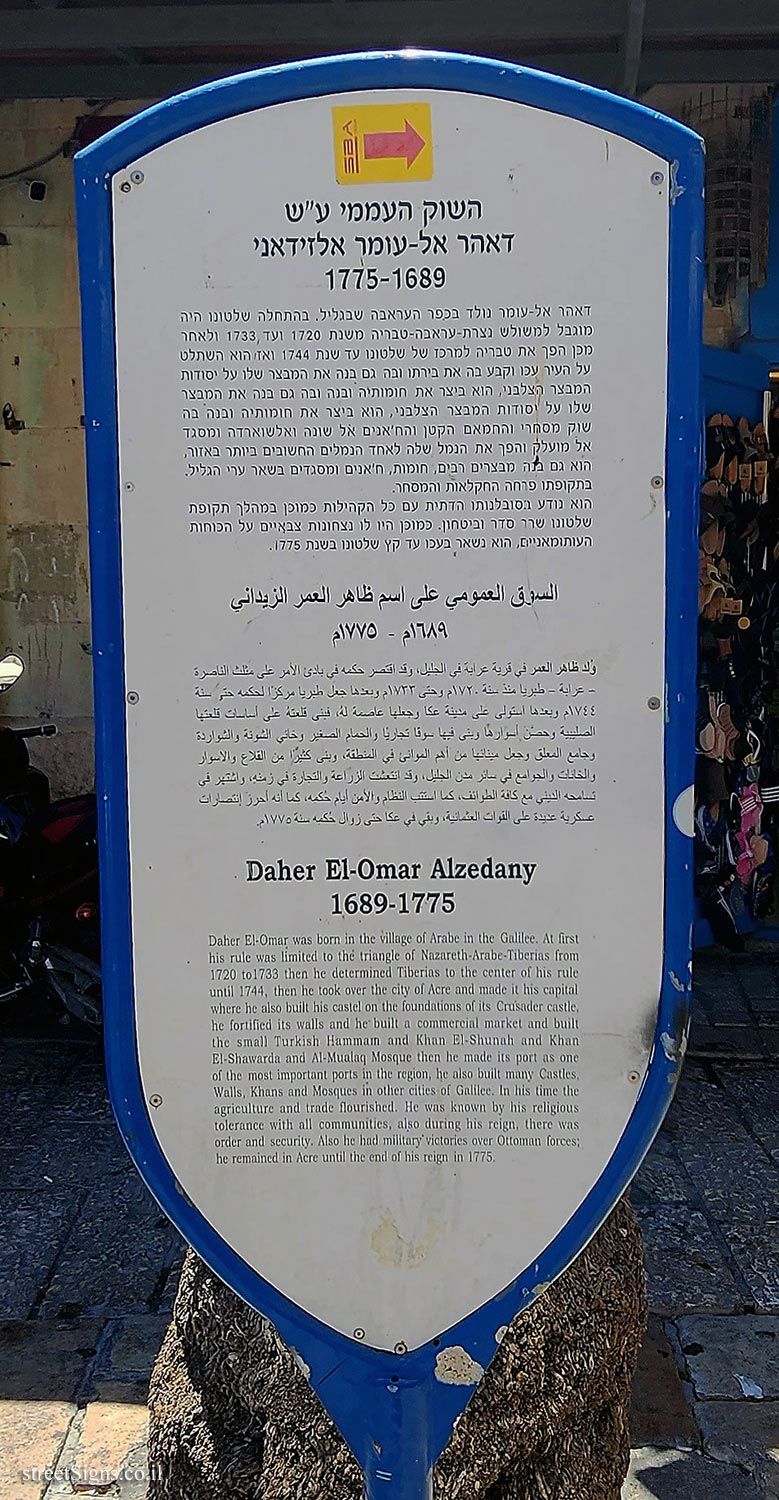 SBA
השוק העממי ע"ש
דאהר אל-עומר אלזידאני
1775-1689
דאהר אל-עומר נולד בכפר העראבה שבגליל. בהתחלה שלטונו היה
מוגבל למשולש נצרת-עראבה-טבריה משנת 1720 ועד 1733 ולאחר
מכן הפך את טבריה למרכז של שלטונו עד שנת 1744 ואז הוא השתלט
על העיר עכו וקבע בה את בירתו ובה גם בנה את המבצר שלו על יסודות
המבצר הצלבני, הוא ביצר את חומותיה ובנה ובה גם בנה את המבצר
שלו על יסודות המבצר הצלבני, הוא ביצר את חומותיה ובנה בה
שוק מסחרי והחמאם הקטן והח'אנים אל שונה ואלשוארדה ומסגד
אל מועלק והפך את הנמל שלה לאחד הנמלים החשובים ביותר באזור,
הוא גם בנה מבצרים רבים, חומות, ח'אנים ומסגדים בשאר ערי הגליל.
בתקופתו פרחה החקלאות והמסחר.
הוא נודע בסובלנותו הדתית עם כל הקהילות כמוכן במהלך תקופת
שלטונו שרר סדר וביטחון. כמוכן היו לו נצחונות צבאיים על הכוחות
העותומאניים, הוא נשאר בעכו עד קץ שלטונו בשנת 1775.
السوق العمومي على اسم ظاهر العمر الزيداني
١٦٨٩م - ١٧٧٥م
وُلد ظاهر العمر في قرية عرابة في الجليل، وقد اقتصر حكمه في بادئ الأمر على مثلث الناصرة
– عرابة – طبريا منذ سنة ١٧٢٠م وحتى ١٧٣٣م وبعدها جعل طبريا مركزًا لحكمه حتى سنة
١٧٤٤م وبعدها استولى على مدينة عكا وجعلها عاصمة لهُ، فبنى قلعتهُ على أساسات قلعتها
الصليبية وحصّن أسوارها وبنى فيها سوقا تجاريًا والحمام الصغير وخاني الشونة والشواردة
وجامع المعلق وجعل مينائها من أهم الموانئ في المنطقة، وبنى كثيرًا من القلاع والاسوار
والخانات والجوامع في سائر مدن الجليل، وقد انتعشت الزراعة والتجارة في زمنهِ، واشتهر في
تسامحه الديني مع كافة الطوائف، كما استتب النظام والأمن أيام حُكمه، كما أنه أحرز إنتصارات
عسكرية عديدة على القوات العثمانية، وبقي في عكا حتى زوال حُكمه سنة ١٧٧٥م.
Daher El-Omar Alzedany
1689-1775
Daher El-Omar was born in the village of Arabe in the Galilee. At first
his rule was limited to the triangle of Nazareth-Arabe-Tiberias from
1720 to1733 then he determined Tiberias to the center of his rule
until 1744, then he took over the city of Acre and made it his capital
where he also built his castel on the foundations of its Crusader castle,
he fortified its walls and he built a commercial market and built
the small Turkish Hammam and Khan El-Shunah and Khan
El-Shawarda and Al-Mualaq Mosque then he made its port as one
of the most important ports in the region, he also built many Castles,
Walls, Khans and Mosques in other cities of Galilee. In his time the
agriculture and trade flourished. He was known by his religious
tolerance with all communities, also during his reign, there was
order and security. Also he had military victories over Ottoman forces;
he remained in Acre until the end of his reign in 1775.
streetSigns.co.il